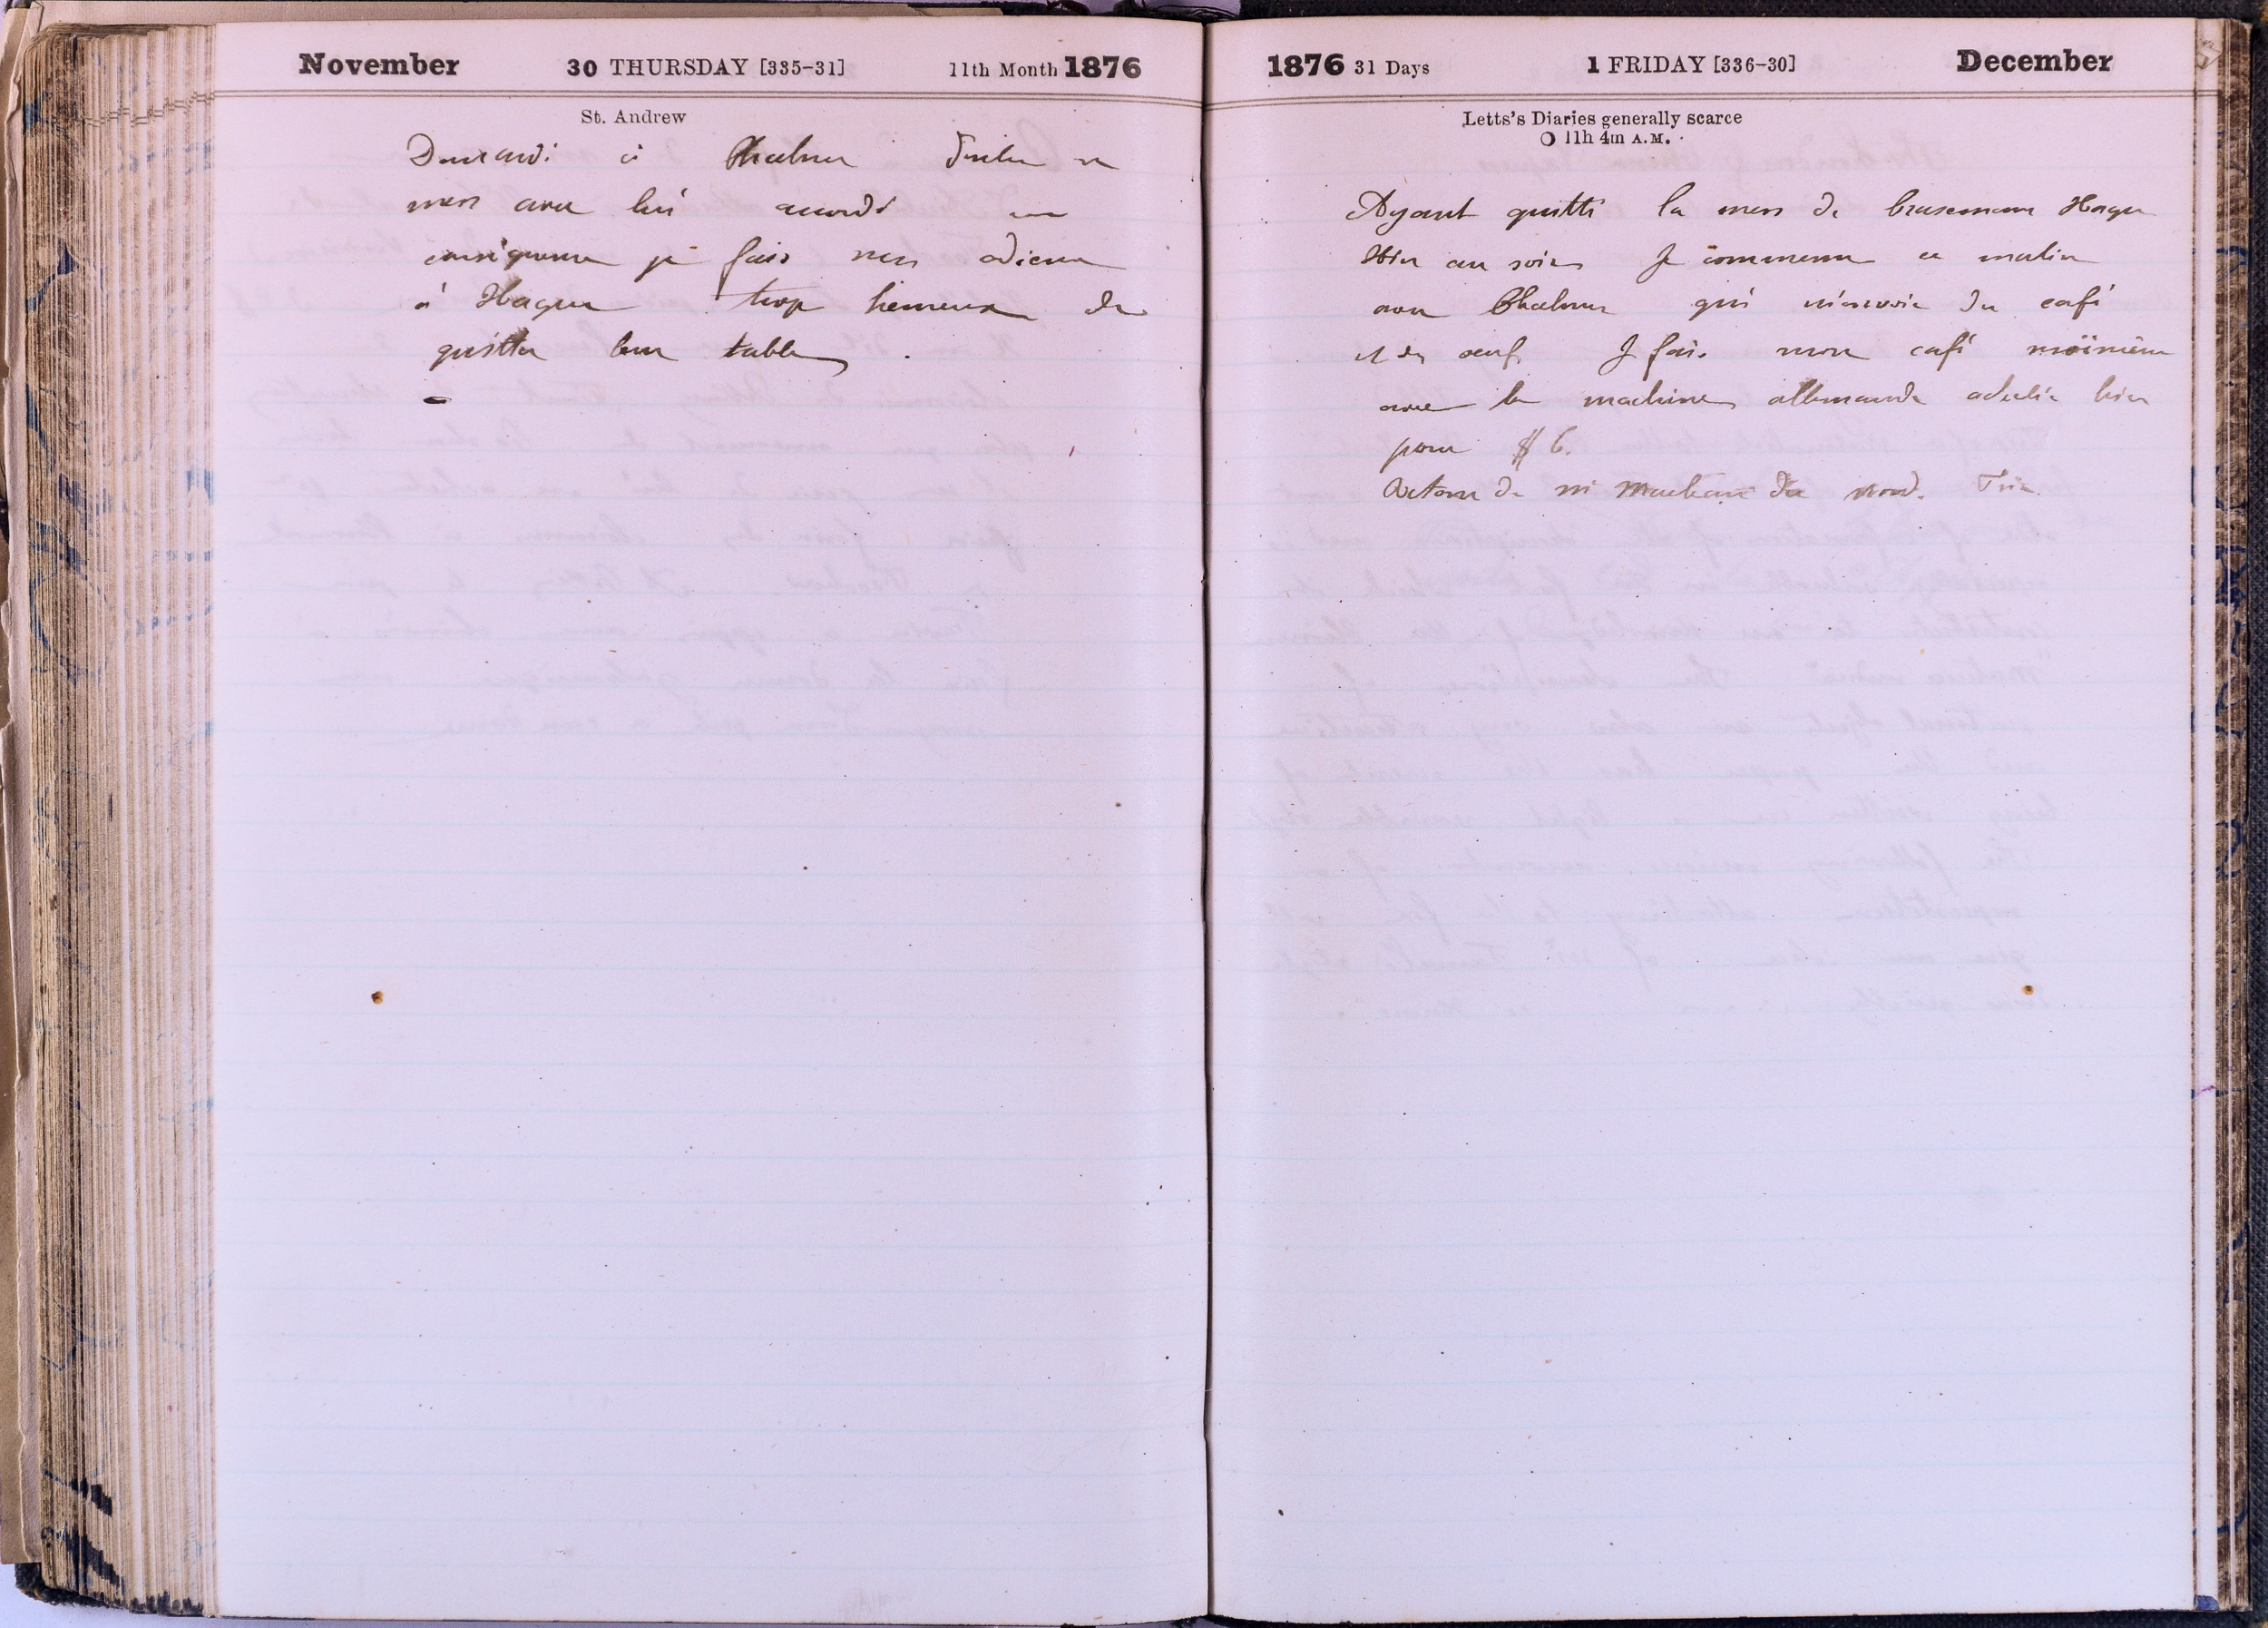 November 30 THURSDAY [335-31] 11th Month 1876
St. Andrew
à Chalmer d'entrer en
mess avec lui accordé en
conséquence je fais mes adieux
à Hague trop heureux de
quitter leur table.
1876 31 Days 1 FRIDAY [336-30] December
Letts's Diaries generally scarce
O 11h 4m A.M.
Ayant quitté la mess de Hague
Hier au soir Je commence ce matin
avec Chalmer qui m'envoie du café
et des oeufs Je fais mon café moimême
avec la machine allemande achetée hier
pour $ 6.
Retour de mr du nord.